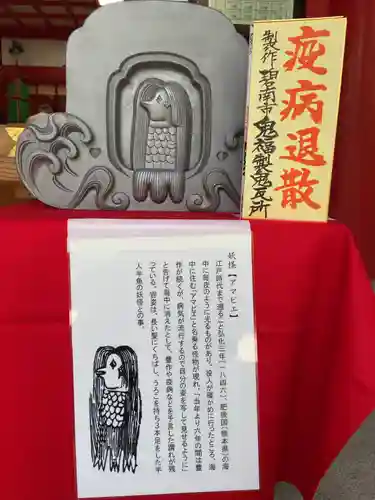 疫病退散
製作 碧南市 鬼福製鬼瓦所
妖怪【アマビエ】
江戸時代まで遡ること弘化三年(一八四六)、肥後国(熊本県)の海
中に毎夜のように光るものがあり、役人が確かめに行ったところ、海
中に住む「アマビエ」と名乗る怪物が現れ、「当年より六年の間は豊
作が続くが、病気が流行するので自分の姿を写して見せるように」
と告げて海中に消えたとして、豊作や疫病などを予言した謂れが残
っている。容姿は、長い髪にくちばし、うろこを持ち3本足をした半
人半魚の妖怪との事。